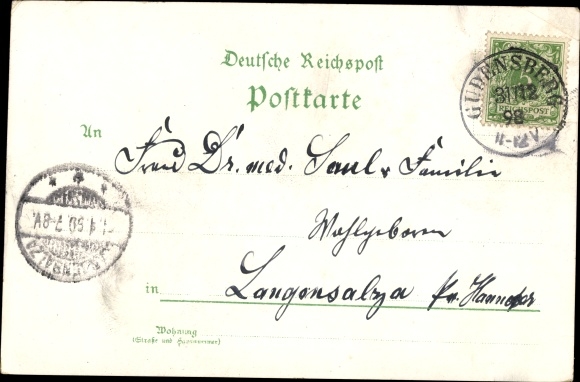 Deutsche Reichspost
Postkarte
GUDENSBERG
31/12
98
11-12V
REICHSPOST
An
Frau Dr. med. Saul u. Familie
Wohlgeboren
in Langensalza
LANGENSALZA
1.1. 7-8V
Wohnung
(Straße und Hausnummer)